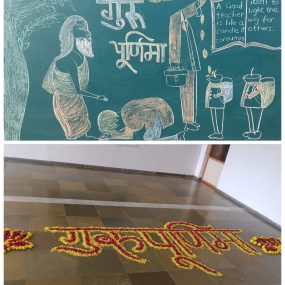 गुरु
पूर्णिमा
A Good
teacher
is like a
Candle it
consumes
itself to
light the
way for
others.
गुरुपूर्णिमा